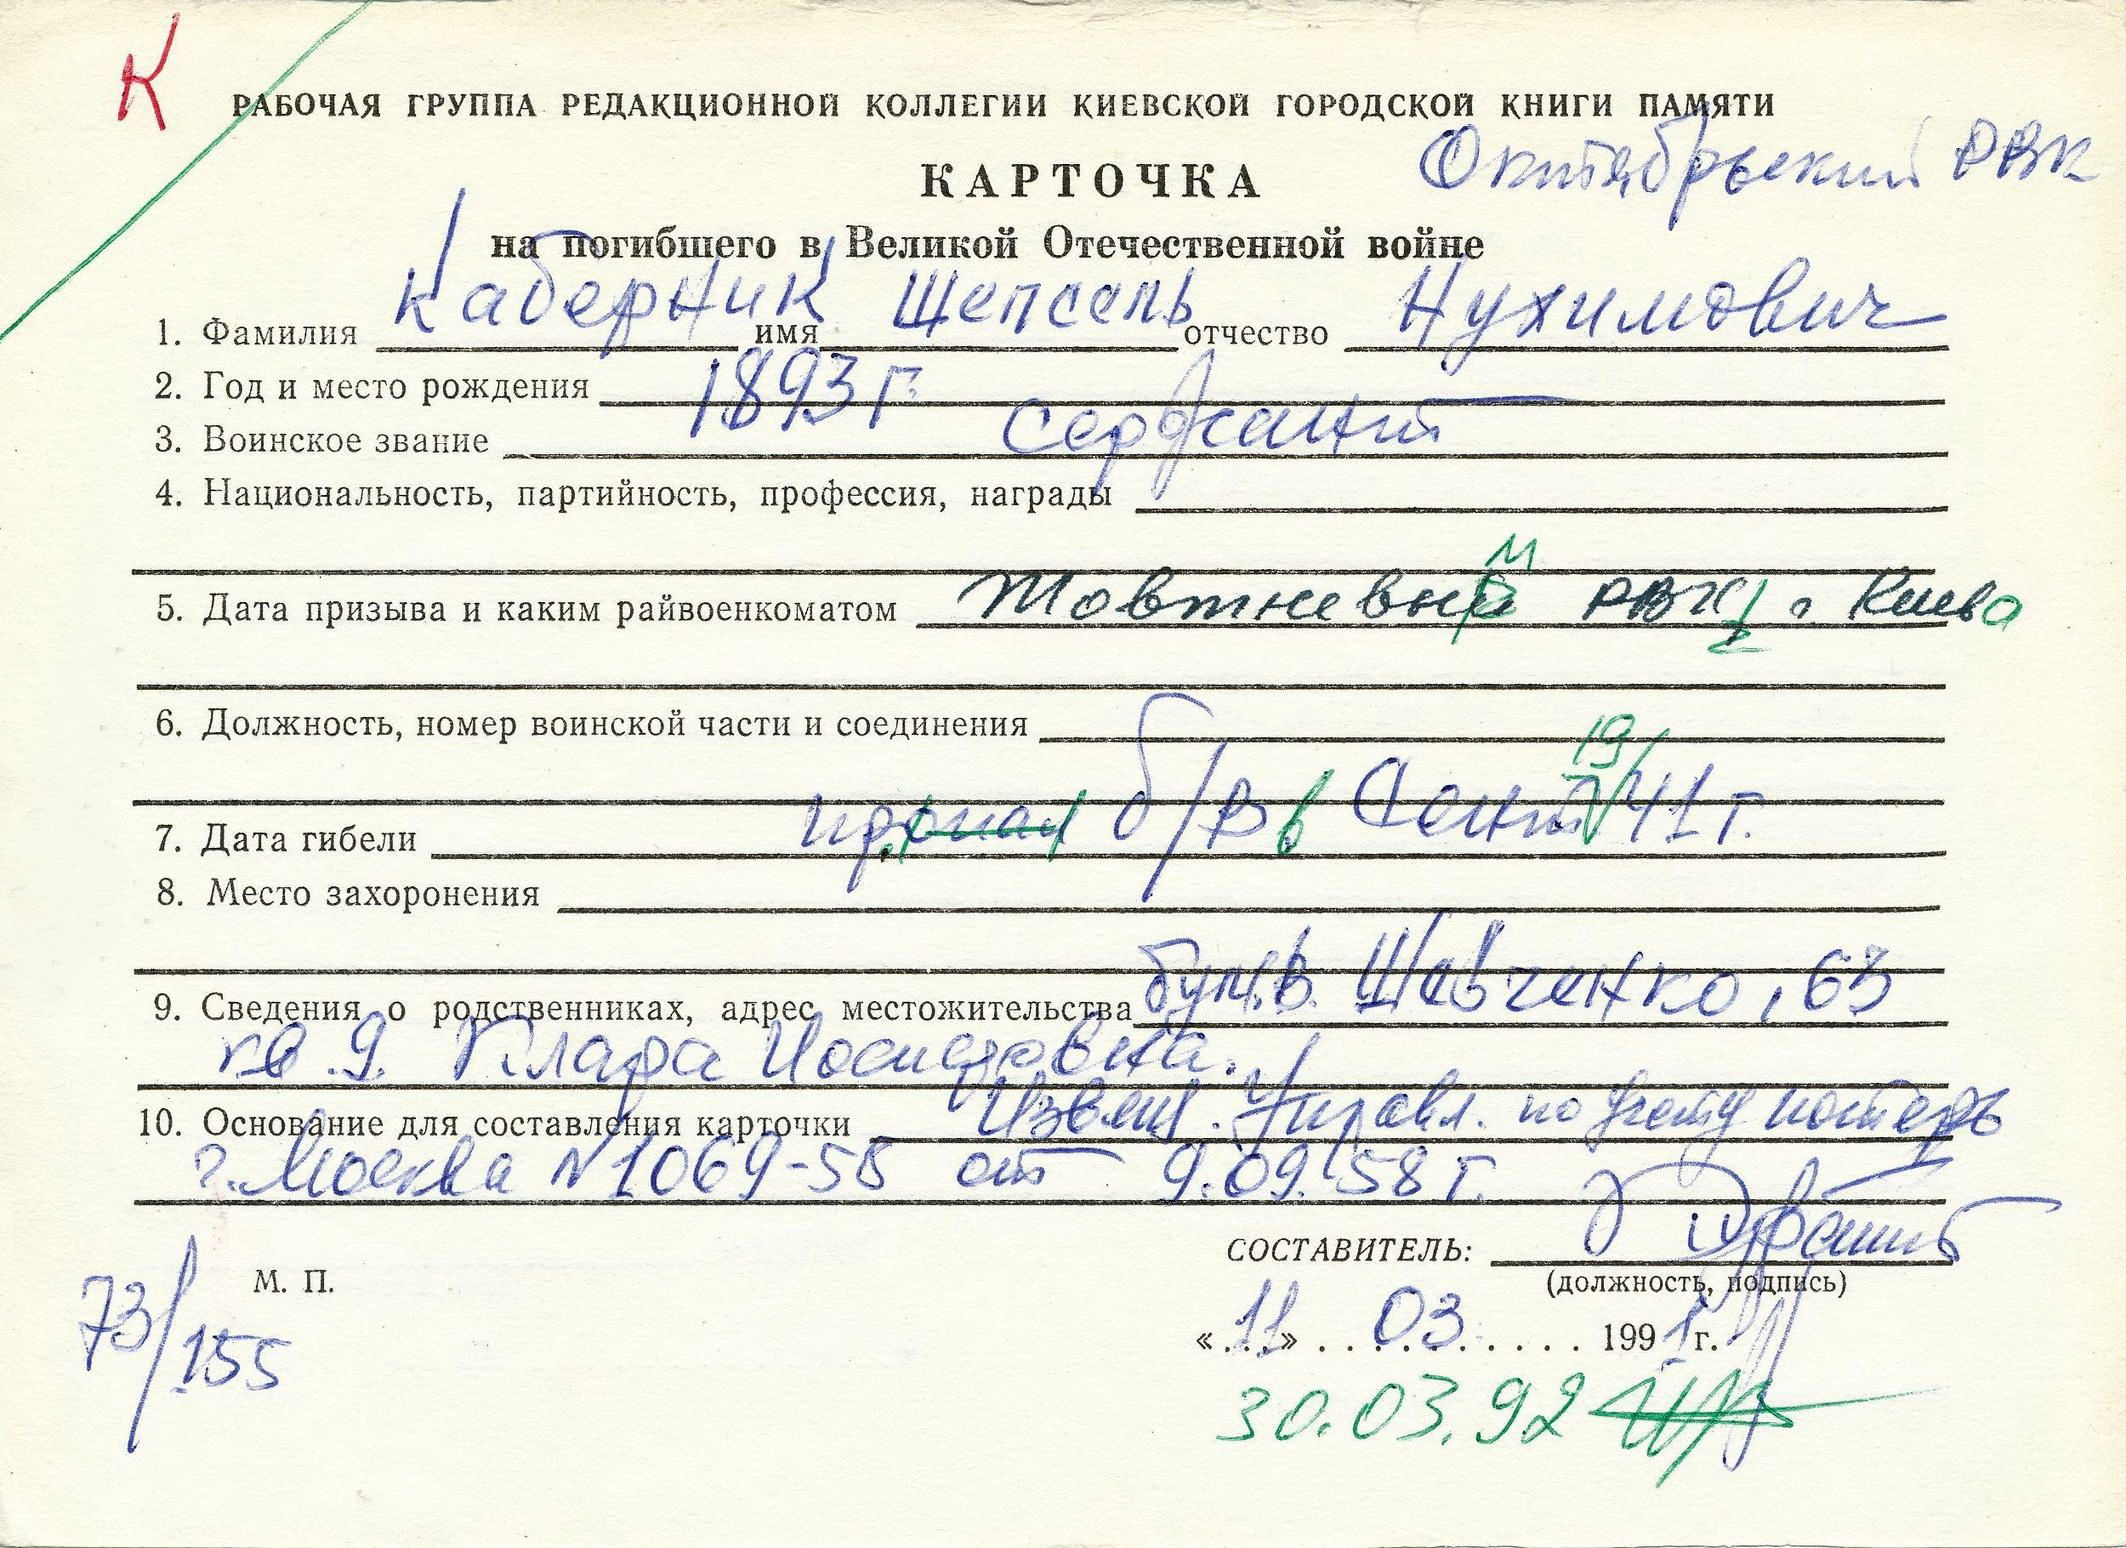 К
РАБОЧАЯ ГРУППА РЕДАКЦИОННОЙ КОЛЛЕГИИ КИЕВСКОЙ ГОРОДСКОЙ КНИГИ ПАМЯТИ
Октябрьский РВК
КАРТОЧКА
на погибшего в Великой Отечественной войне
1. Фамилия Каберник имя Шепсель отчество Нухимович
2. Год и место рождения 1893 г.
3. Воинское звание Сержант
4. Национальность, партийность, профессия, награды
5. Дата призыва и каким райвоенкоматом Жовтневым РВК г. Киева
6. Должность, номер воинской части и соединения
7. Дата гибели пропал б/в в Сент. 1941 г.
8. Место захоронения
9. Сведения о родственниках, адрес местожительства бульв. Шевченко, 63
кв. 9. Клара Иосифовна.
10. Основание для составления карточки Извещ. Управл. по учету потерь
г. Москва N 1069-58 от 9.09.58 г.
СОСТАВИТЕЛЬ:
(должность, подпись)
М. П.
«11» 03 1991 г.
73/155
30.03.92